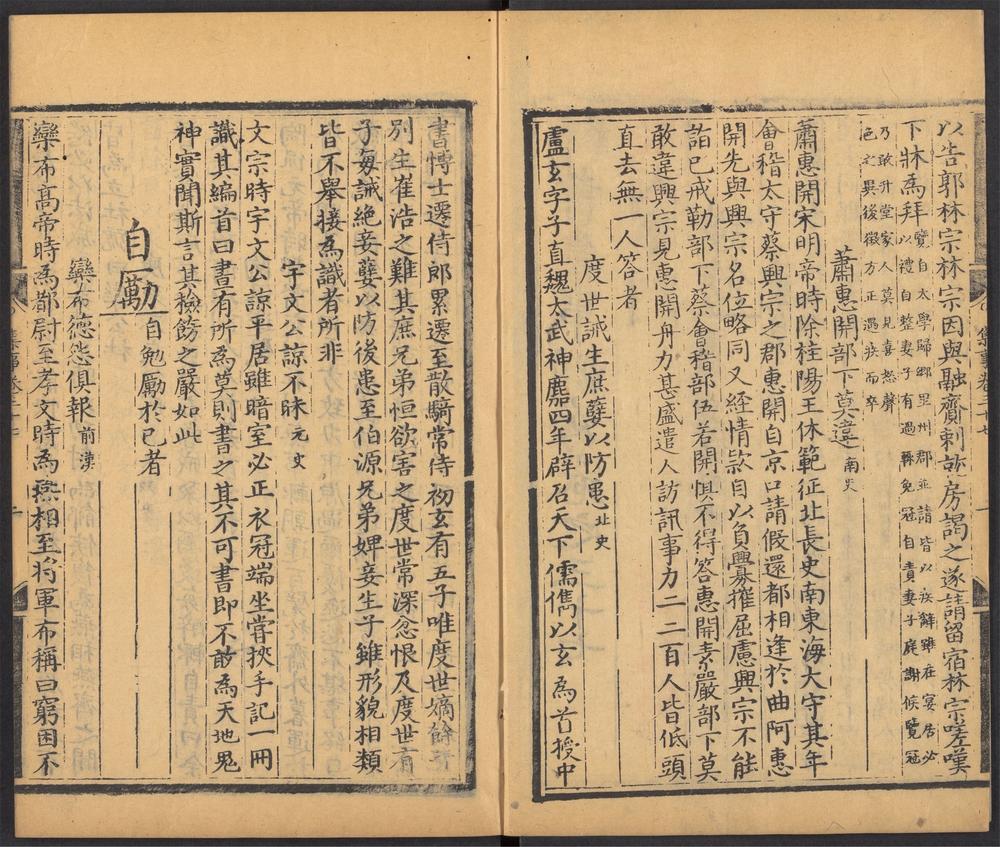 以告郭林宗林宗因與融齎刺就房謁之遂請留宿林宗嗟嘆
下牀為拜覽自太學歸鄉里州郡並請皆以疾辭雖在宴居必
以禮自整妻子有過輒免冠自責妻子庭謝候覽冠
乃敢升堂家人莫見喜怒聲
色之異後徵方正遇疾而卒
蕭惠開部下莫違南史
蕭惠開宋明帝時除桂陽王休範征北長史南東海大守其年
會稽太守蔡興宗之郡惠開自京口請假還都相逢於曲阿惠
開先與興宗名位略同又經情欵自以負釁摧屈慮興宗不能
詣已戒勒部下蔡會稽部伍若開惧不得答惠開素嚴部下莫
敢違興宗見惠開舟力甚盛遣人訪訊事力二三百人皆低頭
直去無一人答者
度世誡生庶孽以防愚北史
盧玄字子直魏太武神䴥四年辟召天下儒儁以玄為首授中
書博士遷侍郎累遷至散騎常侍初玄有五子唯度世嫡餘
別生崔浩之難其庶兄弟恒欲害之度世常深忿恨及度世有
子每誡絶妾孽以防後患至伯源兄弟婢妾生子雖形貌相類
皆不舉接為識者所非
宇文公諒不昧元史
文宗時宇文公諒平居雖暗室必正衣冠端坐嘗挾手記一冊
識其編首曰晝有所為莫則書之其不可書即不敢為天地鬼
神實聞斯言其檢飭之嚴如此
自厲自勉厲於己者
欒布德怨俱報前漢
欒布高帝時為都尉至孝文時為燕相至將軍布稱曰窮困不